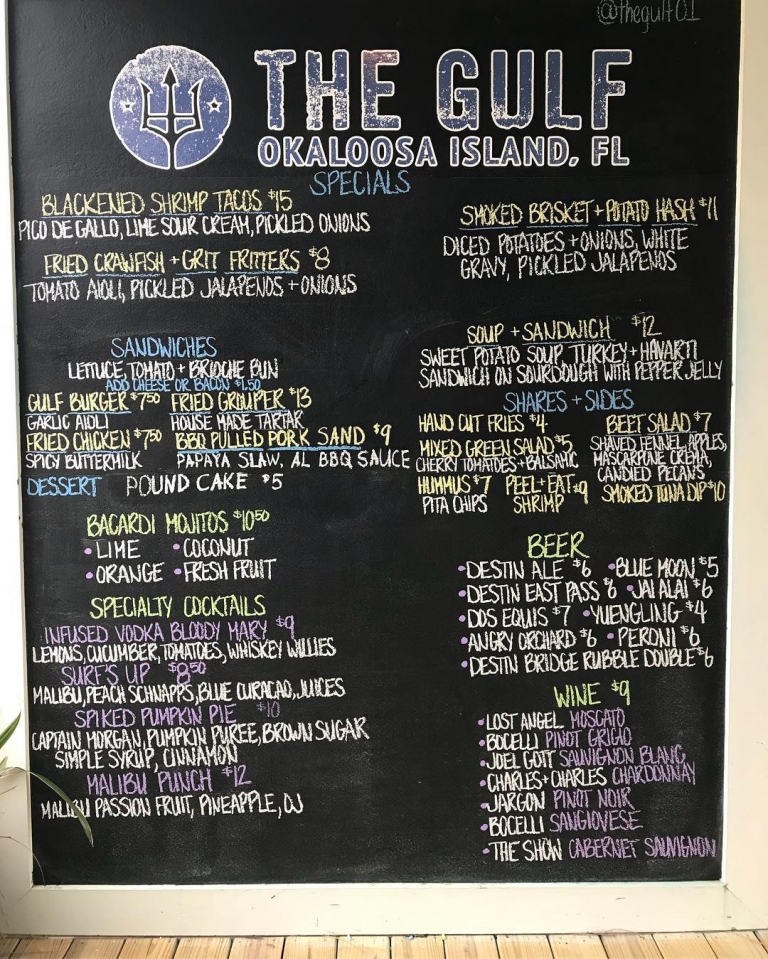 @thegulf01
THE GULF
OKALOOSA ISLAND, FL
SPECIALS
BLACKENED SHRIMP TACOS $15
PICO DE GALLO, LIME SOUR CREAM, PICKLED ONIONS
FRIED CRAWFISH + GRIT FRITTERS $8
TOMATO AIOLI, PICKLED JALAPENOS + ONIONS
SMOKED BRISKET + POTATO HASH $11
DICED POTATOES + ONIONS, WHITE
GRAVY, PICKLED JALAPENOS
SOUP + SANDWICH $12
SWEET POTATO SOUP, TURKEY + HAVARTI
SANDWICH ON SOURDOUGH WITH PEPPER JELLY
SANDWICHES
LETTUCE, TOMATO + BRIOCHE BUN
ADD CHEESE OR BACON $1.50
GULF BURGER $7.50
GARLIC AIOLI
FRIED GROUPER $13
HOUSE MADE TARTAR
FRIED CHICKEN $7.50
SPICY BUTTERMILK
BBQ PULLED PORK SAND $9
PAPAYA SLAW, AL BBQ SAUCE
DESSERT POUND CAKE $5
SHARES + SIDES
HAND CUT FRIES $4
MIXED GREEN SALAD $5
CHERRY TOMATOES + BALSAMIC
HUMMUS $7
PITA CHIPS
PEEL + EAT $9
SHRIMP
BEET SALAD $7
SHAVED FENNEL, APPLES,
MASCARPONE CREMA,
CANDIED PECANS
SMOKED TUNA DIP $10
BACARDI MOJITOS $10.50
• LIME • COCONUT
• ORANGE • FRESH FRUIT
SPECIALTY COCKTAILS
INFUSED VODKA BLOODY MARY $9
LEMONS, CUCUMBER, TOMATOES, WHISKEY WILLIES
SURF'S UP $8.50
MALIBU, PEACH SCHNAPPS, BLUE CURACAO, JUICES
SPIKED PUMPKIN PIE $10
CAPTAIN MORGAN, PUMPKIN PUREE, BROWN SUGAR
SIMPLE SYRUP, CINNAMON
MALIBU PUNCH $12
MALIBU PASSION FRUIT, PINEAPPLE, OJ
BEER
• DESTIN ALE $6 • BLUE MOON $5
• DESTIN EAST PASS $6 • JAI ALAI $6
• DOS EQUIS $7 • YUENGLING $4
• ANGRY ORCHARD $6 • PERONI $6
• DESTIN BRIDGE RUBBLE DOUBLE $6
WINE $9
• LOST ANGEL MOSCATO
• BOCELLI PINOT GRIGIO
• JOEL GOTT SAUVIGNON BLANC
• CHARLES + CHARLES CHARDONNAY
• JARGON PINOT NOIR
• BOCELLI SANGIOVESE
• THE SHOW CABERNET SAUVIGNON